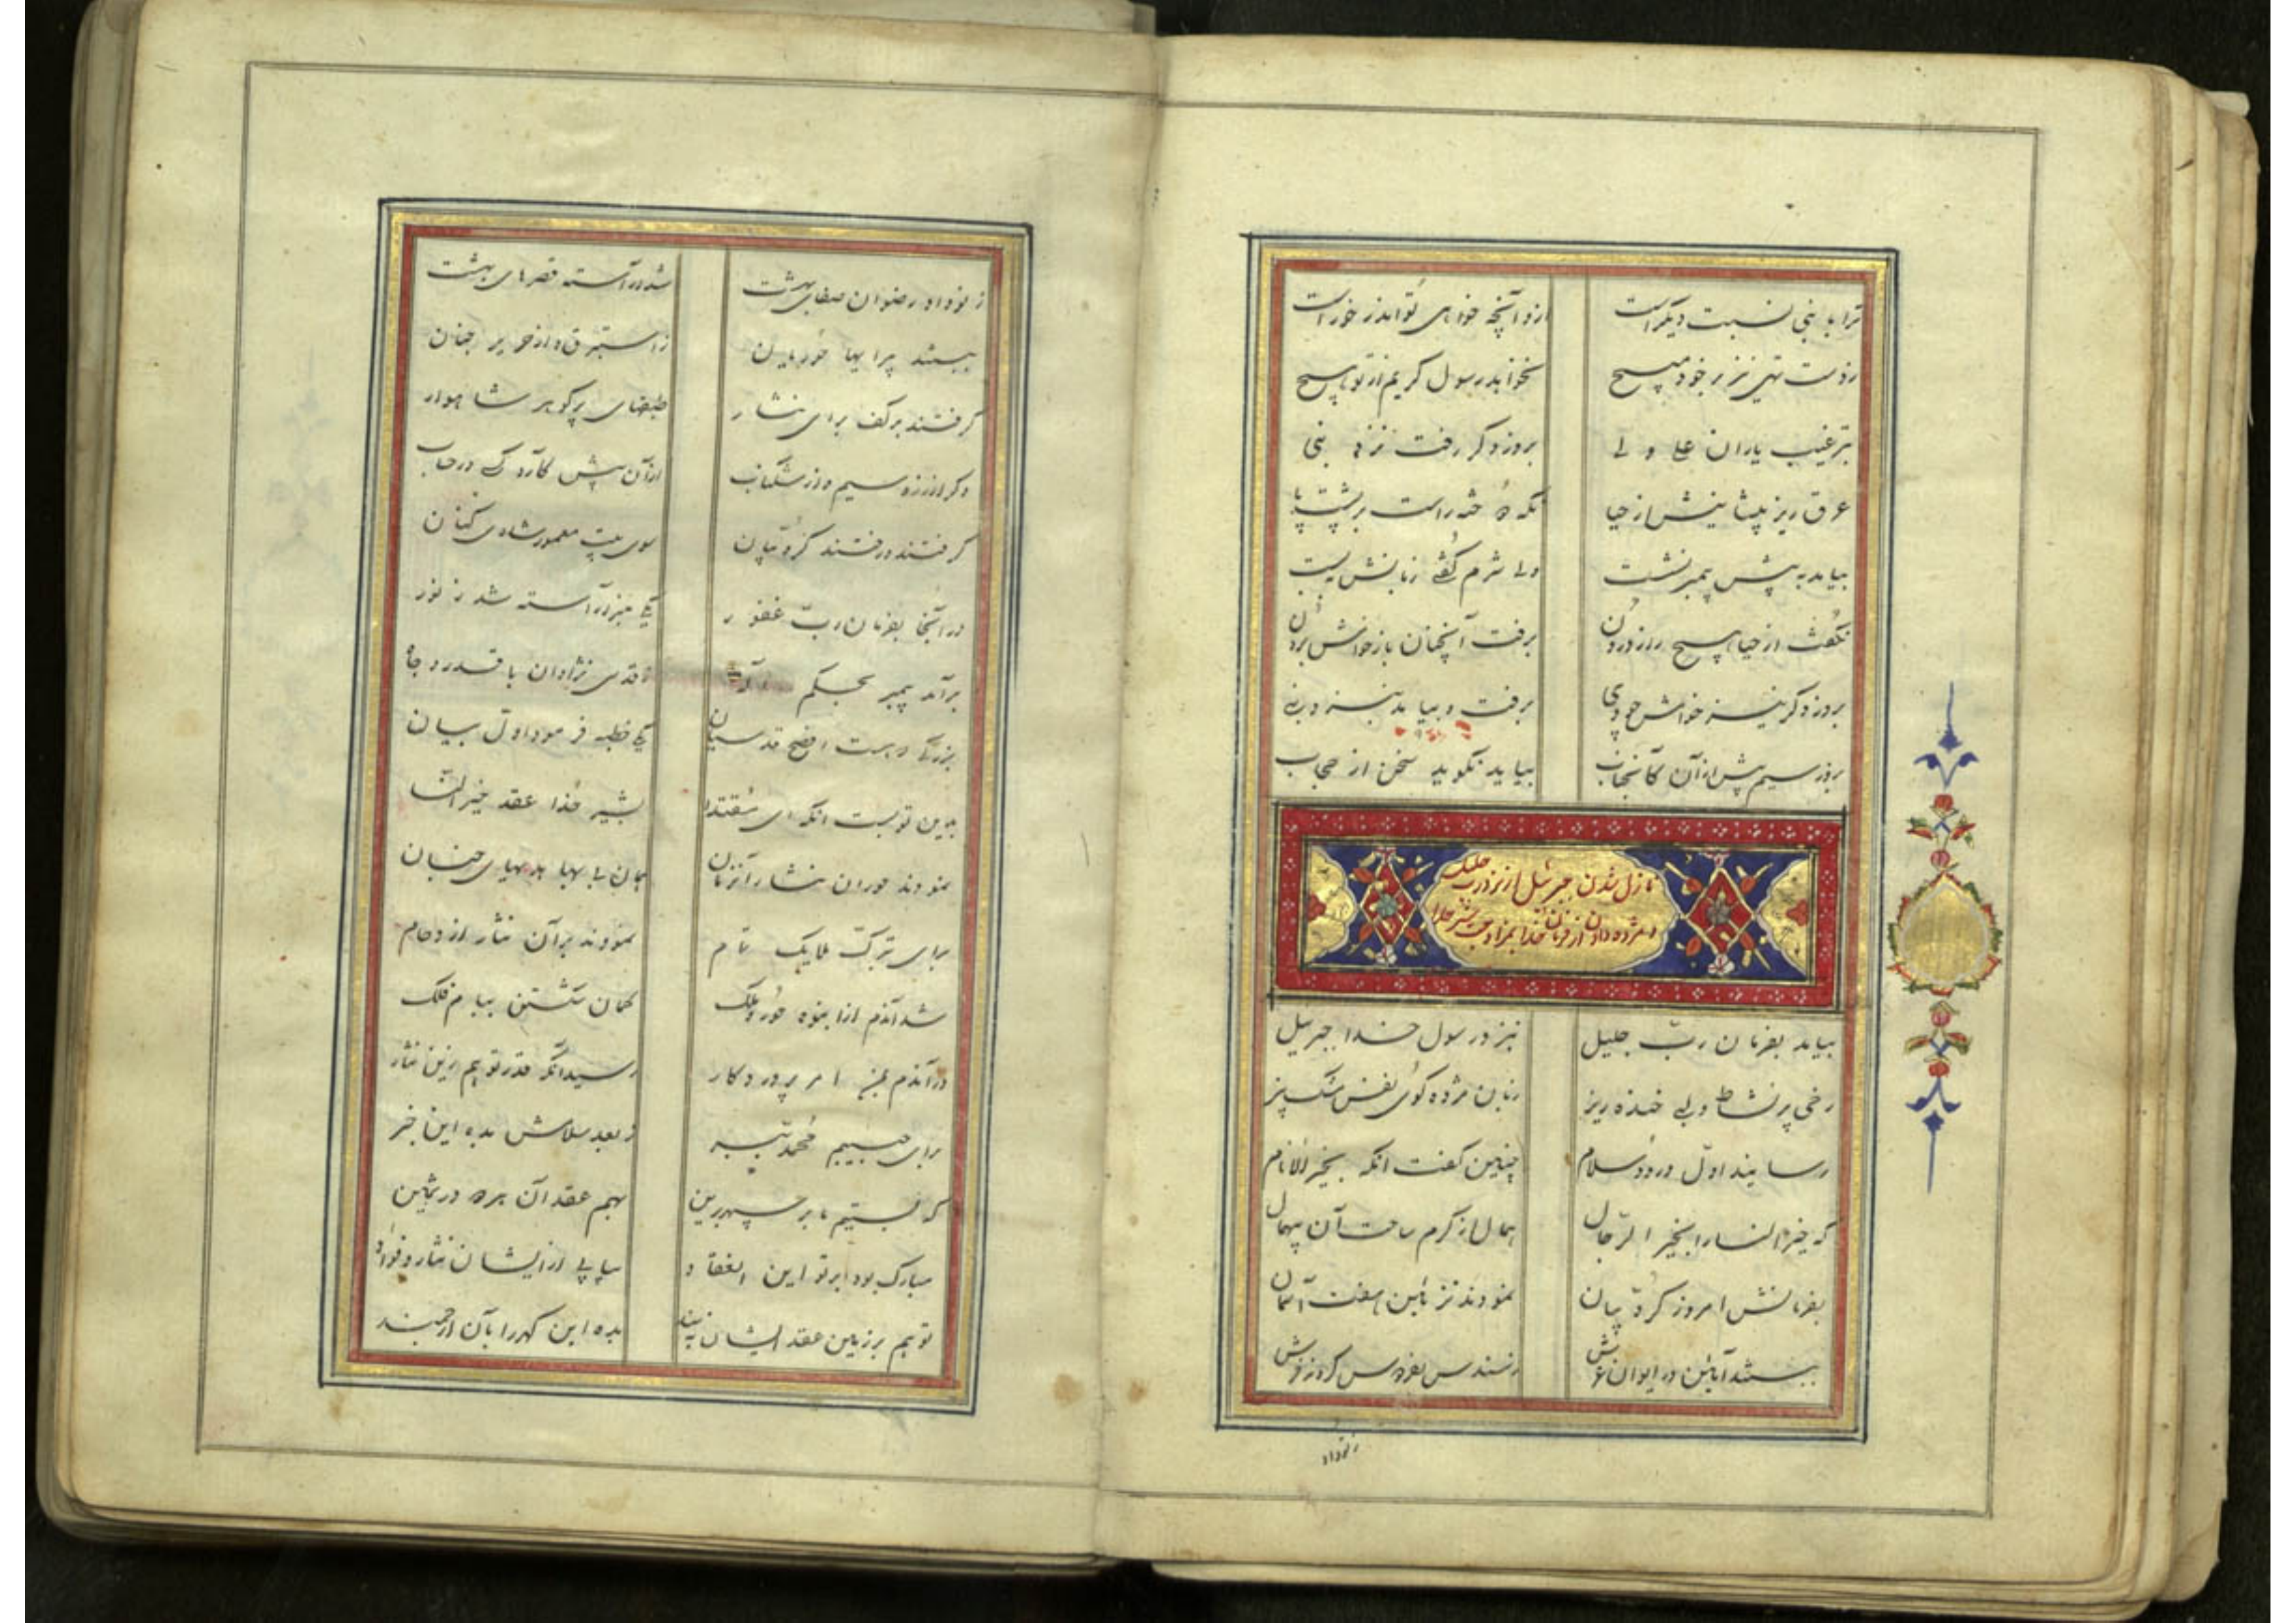 ترا با نبی نسبت دیگر است
ازو آنچه خواهی تو اندر خور است
ز دست تهی نزد خود مپیچ
نخواهد رسول کریم از تو هیچ
بترغیب یاران علی ولی
بروز دگر رفت نزد نبی
عرق ریز پیشانیش از حیا
نگه دوخته راست بر پشت پا
بیامد به پیش پیمبر نشست
ولی شرم گفتی زبانش ببست
نگفت از حیا هیچ راز درون
برفت آنچنان باز خوانش برون
بروز دگر نیز خواهش
برفت و بیامد بنزد نبی
بروز سیم پیش از آن کآنجناب
بیاید نگوید سخن از حجاب
نازل شدن جبرئیل از نزد رب جلیل
و مژده دادن از فرمان خدا
بیامد بفرمان رب جلیل
بنزد رسول خدا جبرئیل
رخی پر نشاط و لبی خنده ریز
زبان مژده گوی نفس مشک بیز
رسانید اول درود و سلام
چنین گفت آنگه بخیر الانام
که خیر النسا را بخیر الرجال
همال از کرم ساخت آن بیهمال
بفرمانش امروز کروبیان
نمودند تزیین هفت آسمان
ببستند آیین در ایوان عرش
ز سندس بفردوس کردند فرش
ز نو داد
ز نو داد رضوان صفای بهشت
شد آراسته قصرهای بهشت
ببستند پیرایها حوریان
ز استبرق و از حریر جنان
گرفتند بر کف برای نثار
طبقهای پر گوهر شاهوار
دگر از زر و سیم و از مشکناب
از آن بیش کآرد کسی در حساب
گرفتند و رفتند کروبیان
سوی بیت معمور شادی کنان
در آنجا بفرمان رب غفور
یکی منبر آراسته شد ز نور
برآمد پیمبر بحکم اله
قدسی نژادان با قدر و جاه
بزرگی که هست افصح قدسیان
یکی خطبه فرمود اول بیان
بدین تو بست آنگه ای مقتدا
بشیر خدا عقد خیر النسا
نمودند حوران نثار آنزمان
همان بی بها هدیهای جنان
برای تبرک ملایک تمام
نمودند بر آن نثار ازدحام
شد آندم از انبوه حور و ملک
گمان شکستن ببام فلک
در آندم بمن امر پروردگار
رسید آنکه قدر تو هم زین نثار
برای حبیبم محمد ببر
ز بعد سلامش بده این خبر
که بستیم ما بر سپهر برین
بهم عقد آن هر دو در ثمین
مبارک بود بر تو این انعقاد
بیاپی از ایشان نثار و فؤاد
تو هم بر زمین عقد ایشان ببند
بده این گهر را بآن ارجمند